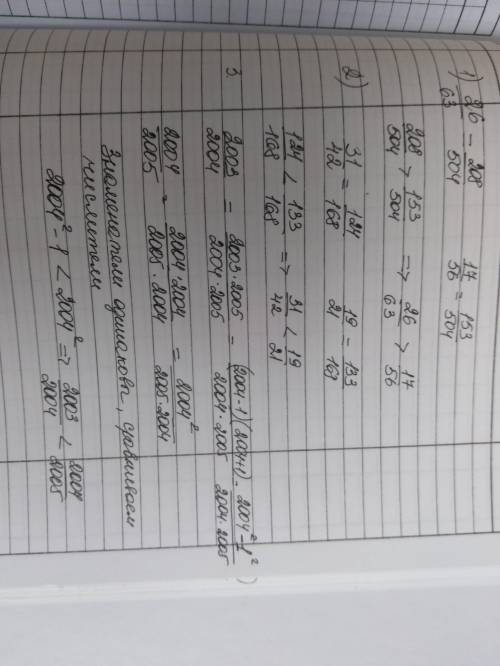 1) 26/63 = 208/504 17/56 = 153/504
208/504 > 153/504 => 26/63 > 17/56
2) 31/42 = 124/168 19/21 = 133/168
124/168 < 133/168 => 31/42 < 19/21
3. 2003/2004 = 2003·2005/2004·2005 = (2004-1)(2004+1)/2004·2005 = 2004²-1²/2004·2005
2004/2005 = 2004·2004/2005·2004 = 2004²/2005·2004
Знаменатели одинаковы, сравниваем
числители
2004²-1 < 2004² => 2003/2004 < 2004/2005